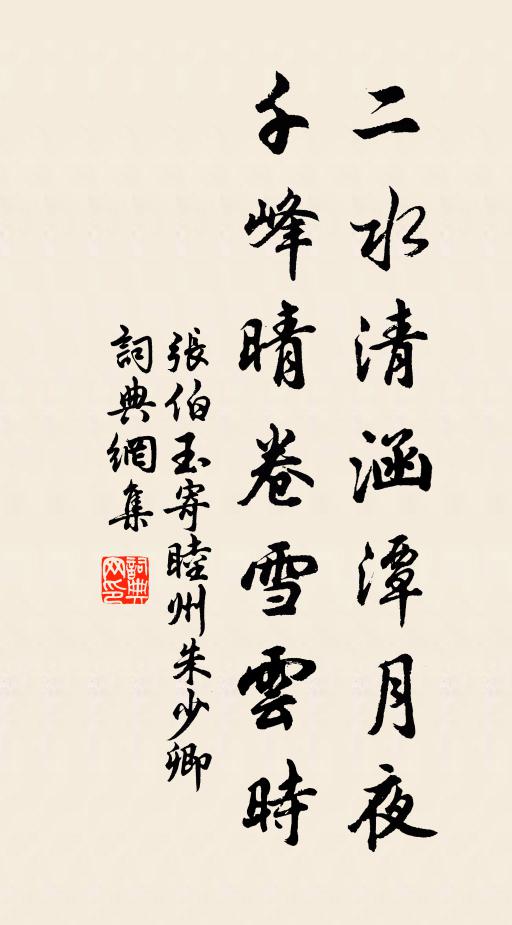 二水清涵潭月夜
千峰晴卷雪雲時
張伯玉寄睦州朱少卿
詞典網集
詞典网印